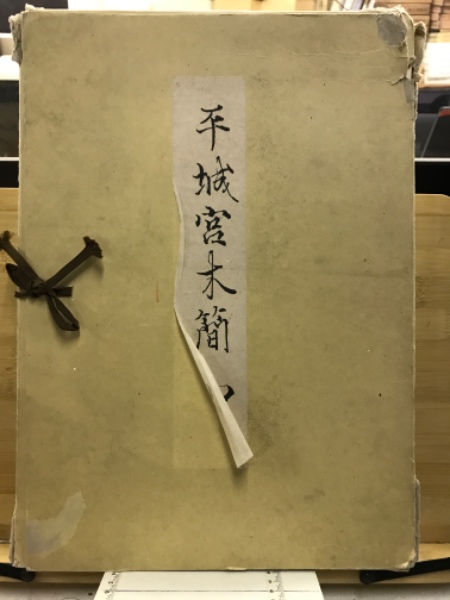 平城宮木簡